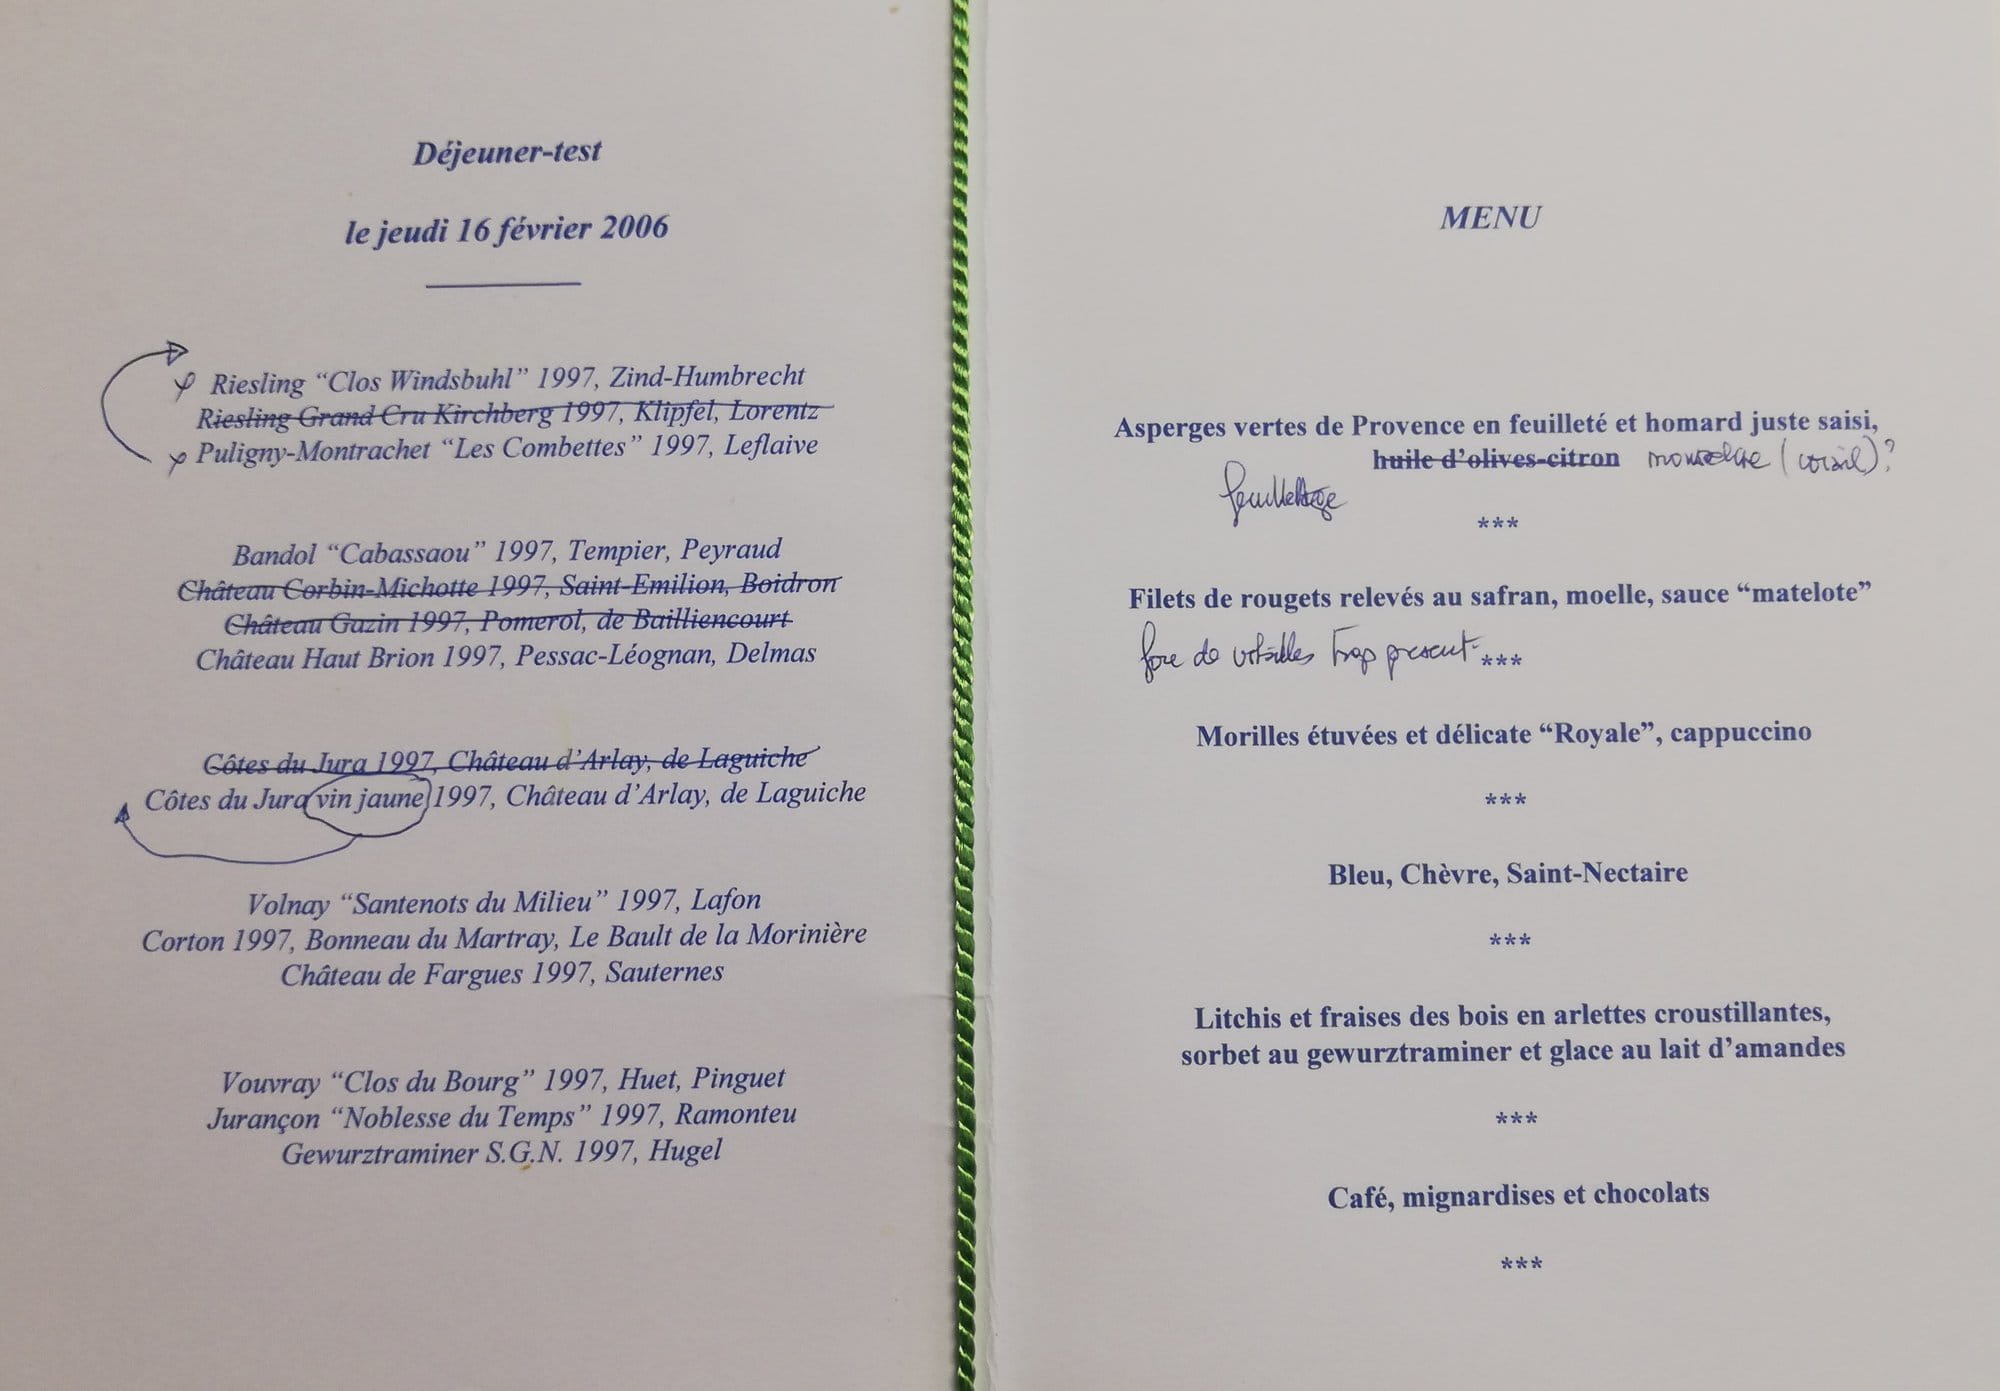 Déjeuner-test
le jeudi 16 février 2006
Riesling “Clos Windsbuhl” 1997, Zind-Humbrecht
Riesling Grand Cru Kirchberg 1997, Klipfel, Lorentz
Puligny-Montrachet “Les Combettes” 1997, Leflaive
Bandol “Cabassaou” 1997, Tempier, Peyraud
Château Corbin-Michotte 1997, Saint-Emilion, Boidron
Château Gazin 1997, Pomerol, de Bailliencourt
Château Haut Brion 1997, Pessac-Léognan, Delmas
Côtes du Jura 1997, Château d’Arlay, de Laguiche
Côtes du Jura vin jaune 1997, Château d’Arlay, de Laguiche
Volnay “Santenots du Milieu” 1997, Lafon
Corton 1997, Bonneau du Martray, Le Bault de la Morinière
Château de Fargues 1997, Sauternes
Vouvray “Clos du Bourg” 1997, Huet, Pinguet
Jurançon “Noblesse du Temps” 1997, Ramonteu
Gewurztraminer S.G.N. 1997, Hugel
MENU
Asperges vertes de Provence en feuilleté et homard juste saisi,
huile d’olives-citron (corail)?
feuilletage
***
Filets de rougets relevés au safran, moelle, sauce “matelote”
foie de volailles trop present ***
Morilles étuvées et délicate “Royale”, cappuccino
***
Bleu, Chèvre, Saint-Nectaire
***
Litchis et fraises des bois en arlettes croustillantes,
sorbet au gewurztraminer et glace au lait d’amandes
***
Café, mignardises et chocolats
***